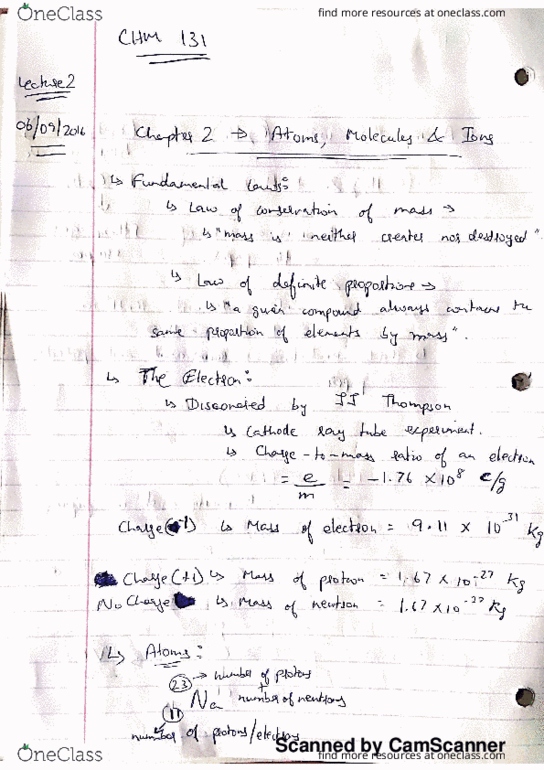 OneClass
find more resources at oneclass.com
CHM 131
Lecture 2
06/09/2016
Chapter 2 → Atoms, Molecules & Ions
↳ Fundamental Laws:
↳ Law of conservation of mass →
↳ "mass is neither creates nor destroyed"
↳ Law of definite proportions →
↳ "a given compound always contains the
same proportion of elements by mass".
↳ The Electron:
↳ Discovered by JJ Thompson
↳ Cathode ray tube experiment.
↳ Charge-to-mass ratio of an electron
= e/m = -1.76 × 10⁸ c/g
Charge(-1) ↳ Mass of electron = 9.11 × 10⁻³¹ Kg
Charge(+1) ↳ Mass of proton = 1.67 × 10⁻²⁷ Kg
No Charge ↳ Mass of neutron = 1.67 × 10⁻²⁷ Kg
↳ Atoms:
23 → number of protons
+
Na number of neutrons
11
number of protons/electrons
Scanned by CamScanner
OneClass
find more resources at oneclass.com